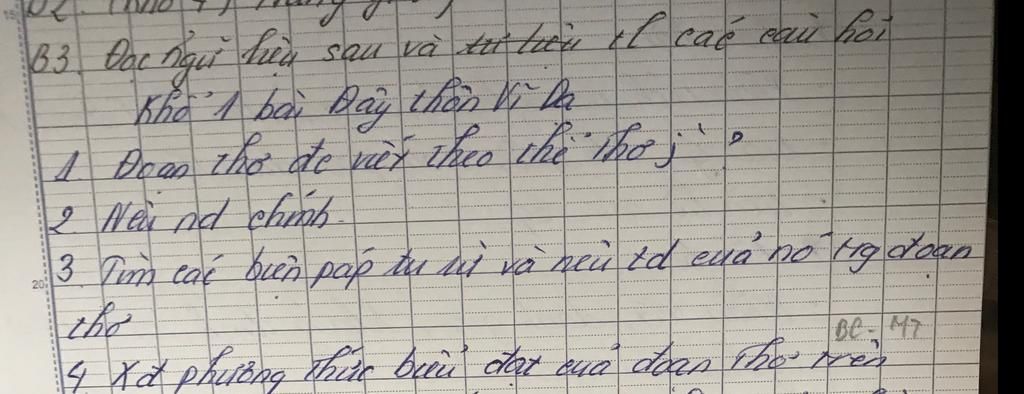 B3. Đọc ngữ liệu sau và tl các câu hỏi
Khổ 1 bài Đây thôn Vĩ Dạ
1 Đoạn thơ đc viết theo thể thơ j ?
2 Nêu nd chính.
3 Tìm các biện páp tu từ và nêu td của nó trg đoạn
thơ
BC - MT
4 Xđ phương thức biểu đạt của đoạn thơ trên